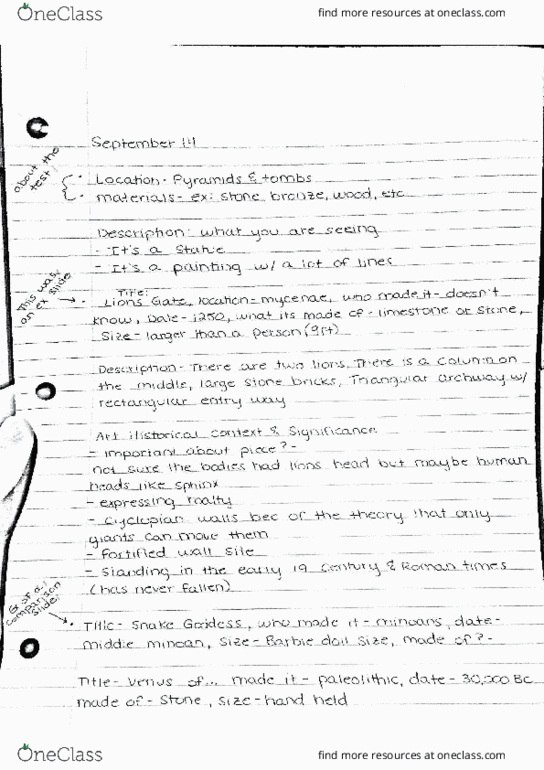 OneClass
find more resources at oneclass.com
September 14
about the
test
• Location - Pyramids & tombs
• materials - ex: stone bronze, wood, etc
Description: what you are seeing
- It's a statue
- It's a painting w/ a lot of lines
This was
an ex slide
Title:
• Lions Gate, location - mycenae, who made it - doesn't
know, Date - 1250, what its made of - limestone or stone,
Size - larger than a person (9ft)
Description - There are two lions. There is a column on
the middle, large stone bricks, Triangular archway w/
rectangular entry way
Art Historical Context & Significance
- important about piece? -
not sure the bodies had lions head but maybe human
heads like sphinx
- expressing roalty
- cyclopian walls bec of the theory that only
giants can move them
- fortified wall site
- Standing in the early 19 century & Roman times
(has never fallen)
comparison
slide
• Title - Snake Goddess, who made it - minoans, date -
middle minoan, size - Barbie doll size, made of? -
Title - Venus of... made it - paleolithic, date - 30,000 BC
made of - Stone, size - hand held
OneClass
find more resources at oneclass.com